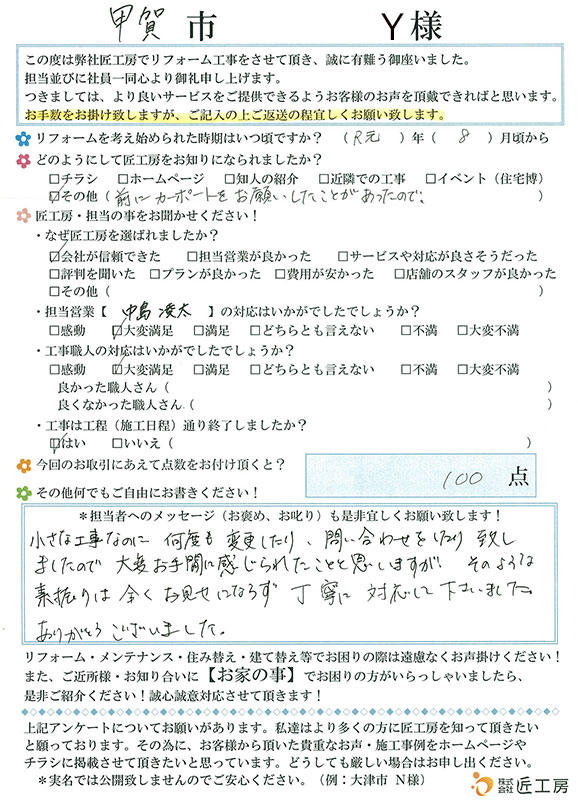 甲賀 市 Y様
この度は弊社匠工房でリフォーム工事をさせて頂き、誠に有難う御座いました。
担当並びに社員一同心より御礼申し上げます。
つきましては、より良いサービスをご提供できるようお客様のお声を頂戴できればと思います。
お手数をお掛け致しますが、ご記入の上ご返送の程宜しくお願い致します。
リフォームを考え始められた時期はいつ頃ですか？ （R元）年（8）月頃から
どのようにして匠工房をお知りになられましたか？
□チラシ □ホームページ □知人の紹介 □近隣での工事 □イベント（住宅博）
☑その他（前にカーポートをお願いしたことがあったので。）
匠工房・担当の事をお聞かせください！
・なぜ匠工房を選ばれましたか？
☑会社が信頼できた □担当営業が良かった □サービスや対応が良さそうだった
□評判を聞いた □プランが良かった □費用が安かった □店舗のスタッフが良かった
□その他（ ）
・担当営業【 中島 凌太 】の対応はいかがでしたでしょうか？
□感動 ☑大変満足 □満足 □どちらとも言えない □不満 □大変不満
・工事職人の対応はいかがでしたでしょうか？
□感動 ☑大変満足 □満足 □どちらとも言えない □不満 □大変不満
良かった職人さん（ ）
良くなかった職人さん（ ）
・工事は工程（施工日程）通り終了しましたか？
☑はい □いいえ（ ）
今回のお取引にあえて点数をお付け頂くと？ 100 点
その他何でもご自由にお書きください！
＊担当者へのメッセージ（お褒め、お叱り）も是非宜しくお願い致します！
小さな工事なのに 何度も 変更したり、問い合わせをしたり 致し
ましたので 大変お手間に感じられたことと思いますが、そのような
素振りは 全く お見せにならず 丁寧に 対応して下さいました。
ありがとうございました。
リフォーム・メンテナンス・住み替え・建て替え等でお困りの際は遠慮なくお声掛けください！
また、ご近所様・お知り合いに【お家の事】でお困りの方がいらっしゃいましたら、
是非ご紹介ください！誠心誠意対応させて頂きます！
上記アンケートについてお願いがあります。私達はより多くの方に匠工房を知って頂きたい
と願っております。その為に、お客様から頂いた貴重なお声・施工事例をホームページや
チラシに掲載させて頂きたいと思っています。どうしても厳しい場合はお申し出ください。
＊実名では公開致しませんのでご安心ください。（例：大津市 N様）
株式会社匠工房